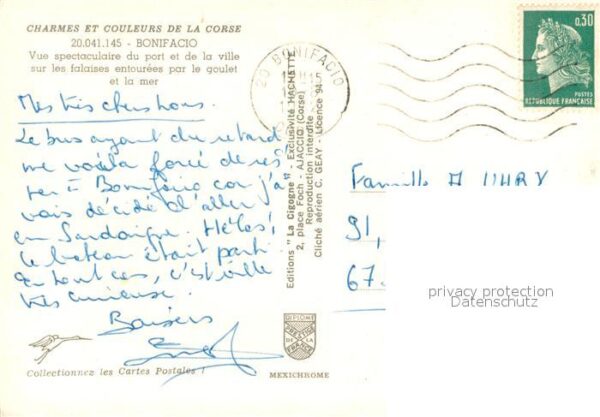 CHARMES ET COULEURS DE LA CORSE
20.041.145 - BONIFACIO
Vue spectaculaire du port et de la ville
sur les falaises entourées par le goulet
et la mer
Mes très chers tous.
Le bus ayant du retard
me voilà forcé de res-
ter à Bonifacio car j'a-
vais décidé d'aller
en Sardaigne. Hélas!
le bateau était parti
En tout cas, c'est ville
très curieuse.
Baisers
Collectionnez les Cartes Postales !
Editions "La Cigogne" - Exclusivité HACHETTE
2, place Foch - AJACCIO (Corse)
Reproduction interdite
Cliché aérien C. GEAY - Licence 94
DIPLOME
PRESTIGE
DE LA
FRANCE
MEXICHROME
20 BONIFACIO
0,30
POSTES
REPUBLIQUE FRANÇAISE
Famille
91,
67.
privacy protection
Datenschutz